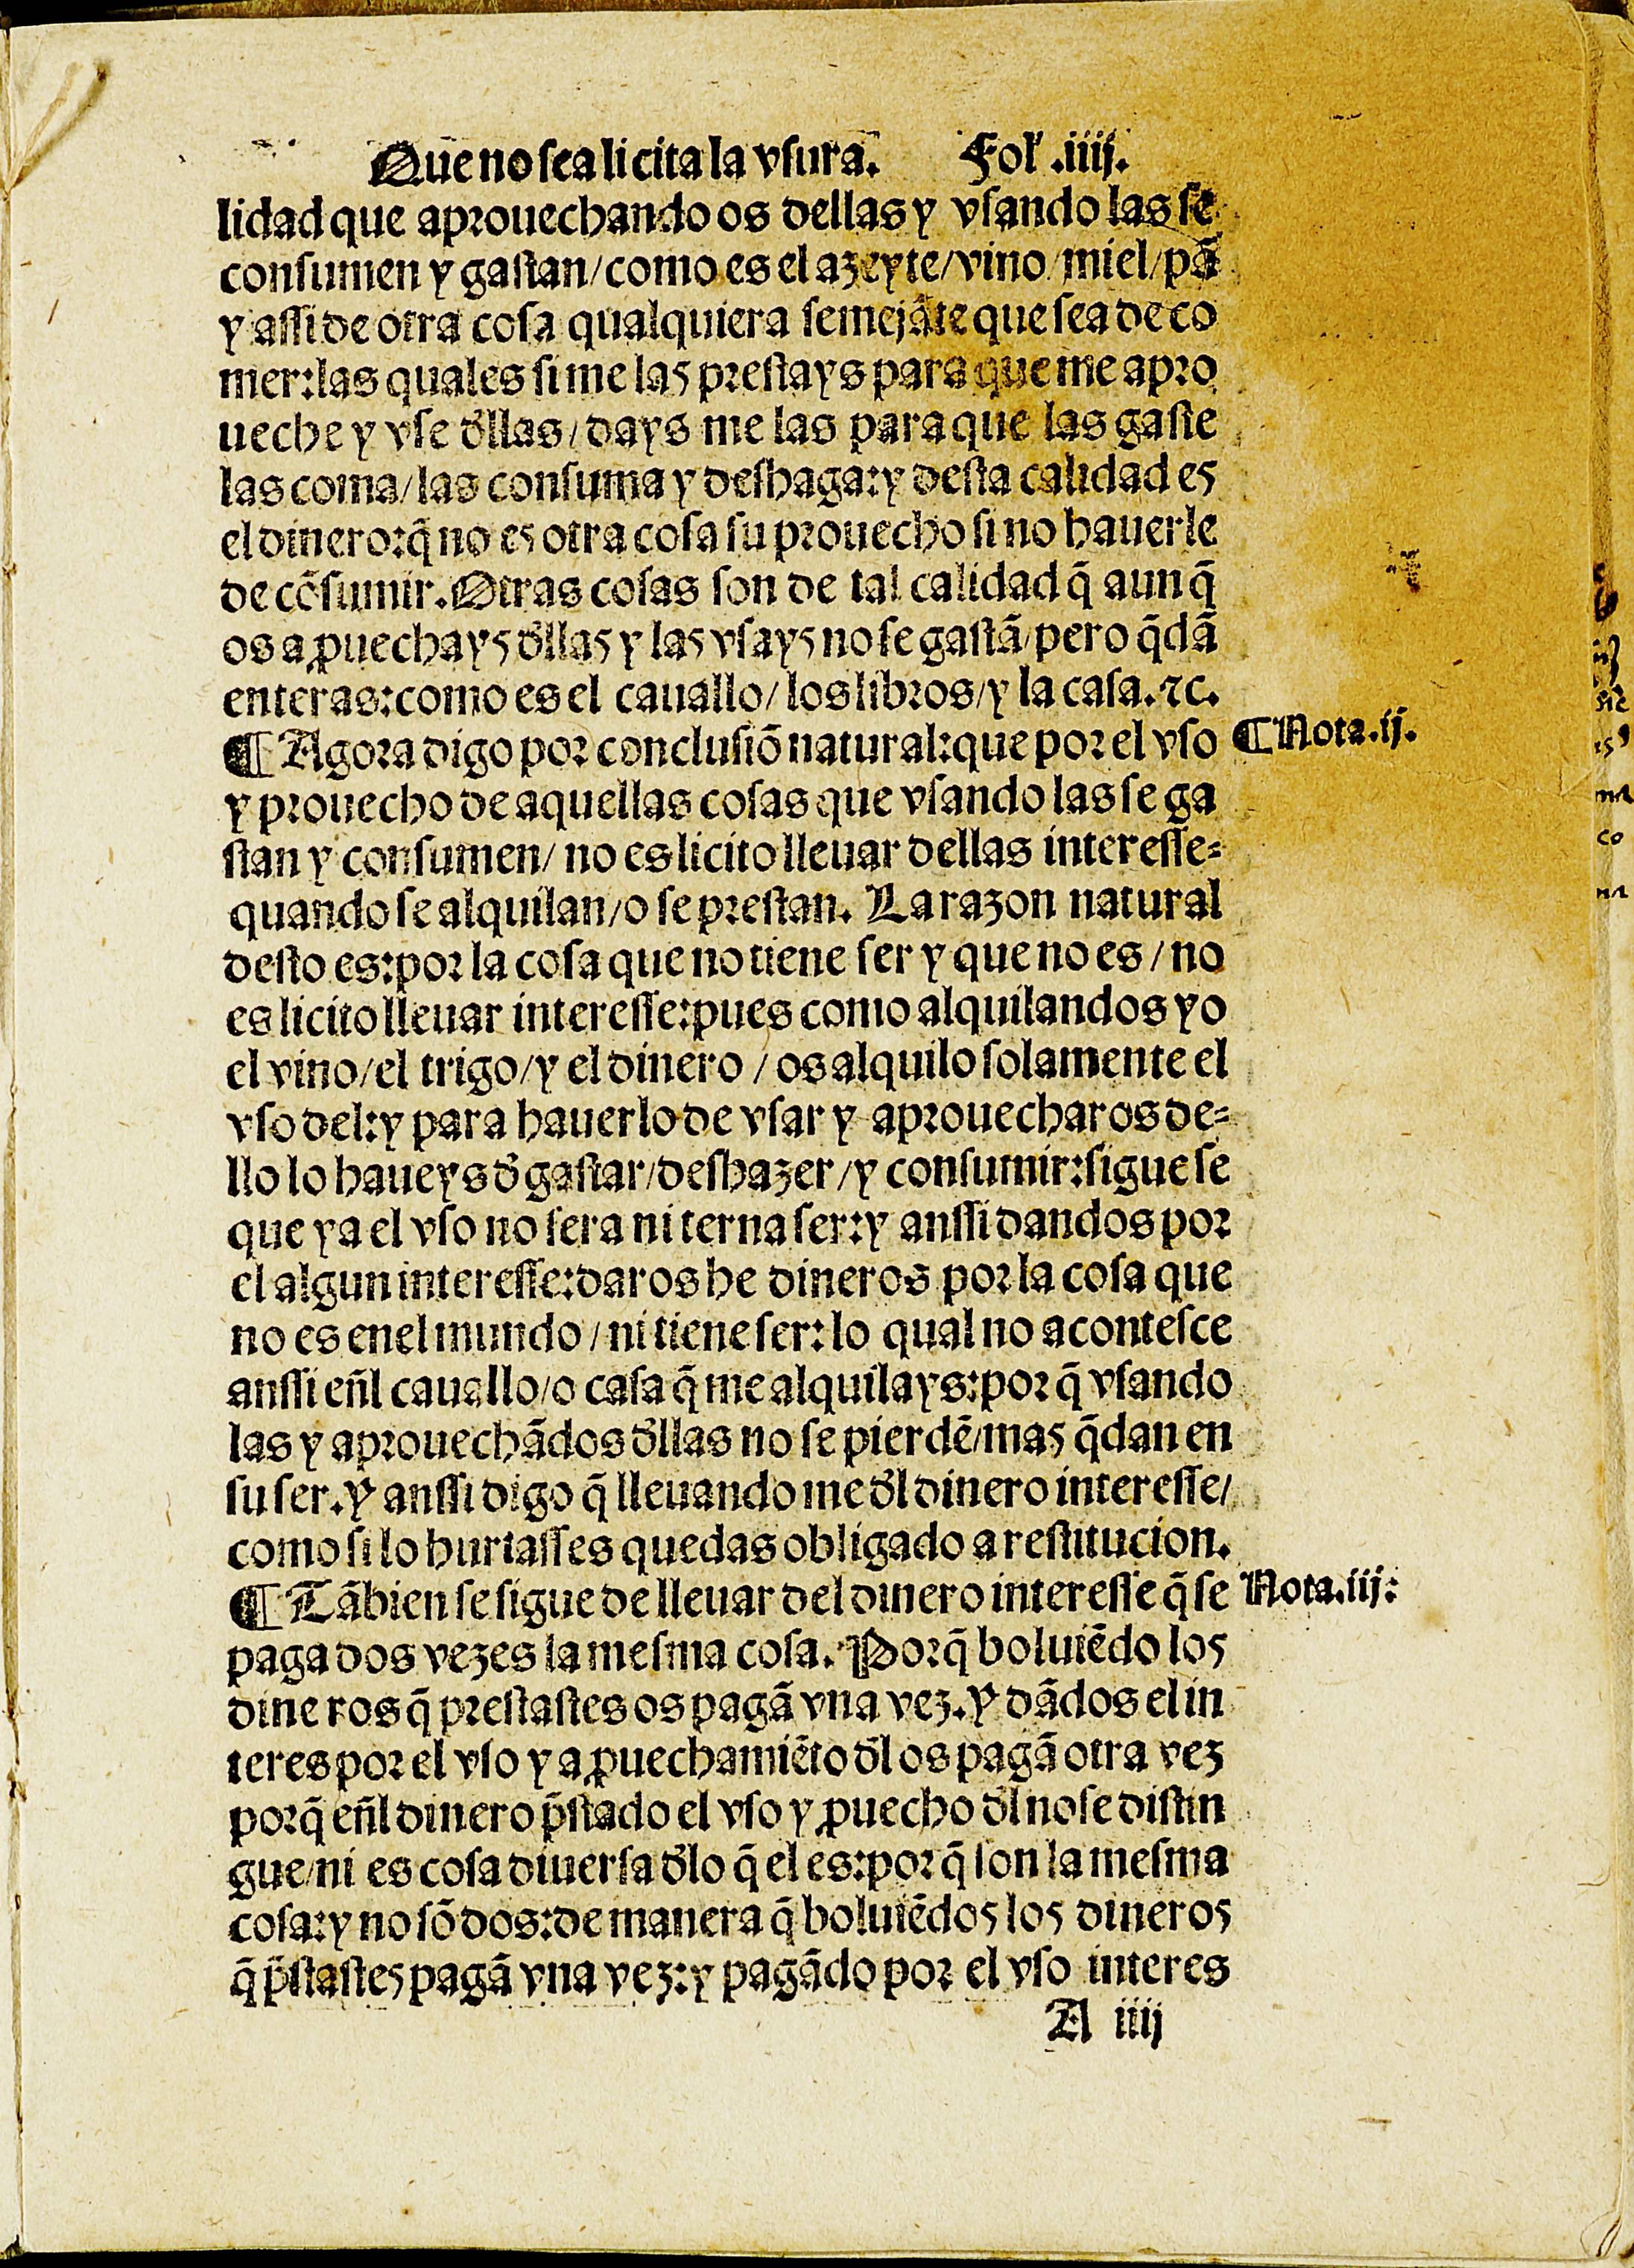 Que no sea licita la vsura. Fol .iiij.
lidad que aprouechando os dellas y vsando las se
consumen y gastan/como es el azeyte/vino/miel/pã
y assi de otra cosa qualquiera semejãte que sea de co
mer:las quales si me las prestays para que me apro
ueche y vse d̃llas/days me las para que las gaste
las coma/las consuma y deshaga:y desta calidad es
el dinero:q̃ no es otra cosa su prouecho si no hauerle
de cõsumir. Otras cosas son de tal calidad q̃ aun q̃
os a ꝓuechays d̃llas y las vsays no se gastã/pero q̃dã
enteras:como es el cauallo/los libros/y la casa.⁊c.
¶ Agora digo por conclusiõ natural:que por el vso
¶ Nota.ij.
y prouecho de aquellas cosas que vsando las se ga
stan y consumen/no es licito lleuar dellas interesse=
quando se alquilan/o se prestan. La razon natural
desto es:por la cosa que no tiene ser y que no es/no
es licito lleuar interesse:pues como alquilandos yo
el vino/el trigo/y el dinero/os alquilo solamente el
vso del:y para hauerlo de vsar y aprouecharos de=
llo lo haueys d̃ gastar/deshazer/y consumir:sigue se
que ya el vso no sera ni terna ser:y anssi dandos por
el algun interesse:daros he dineros por la cosa que
no es enel mundo/ni tiene ser:lo qual no acontesce
anssi eñl cauallo/o casa q̃ me alquilays:por q̃ vsando
las y aprouechãdos d̃llas no se pierdẽ/mas q̃dan en
su ser.Y anssi digo q̃ lleuando me d̃l dinero interesse/
como si lo hurtasses quedas obligado a restitucion.
¶ Tãbien se sigue de lleuar del dinero interesse q̃ se
Nota.iij:
paga dos vezes la mesma cosa. Porq̃ boluiẽdo los
dineros q̃ prestastes os pagã vna vez.Y dãdos el in
teres por el vso y a ꝓuechamiẽto d̃l os pagã otra vez
porq̃ eñl dinero p̃stado el vso y ꝓuecho d̃l no se distin
gue/ni es cosa diuersa d̃lo q̃ el es:por q̃ son la mesma
cosa:y no sõ dos:de manera q̃ boluiẽdos los dineros
q̃ p̃stastes pagã vna vez:y pagãdo por el vso interes
A iiij